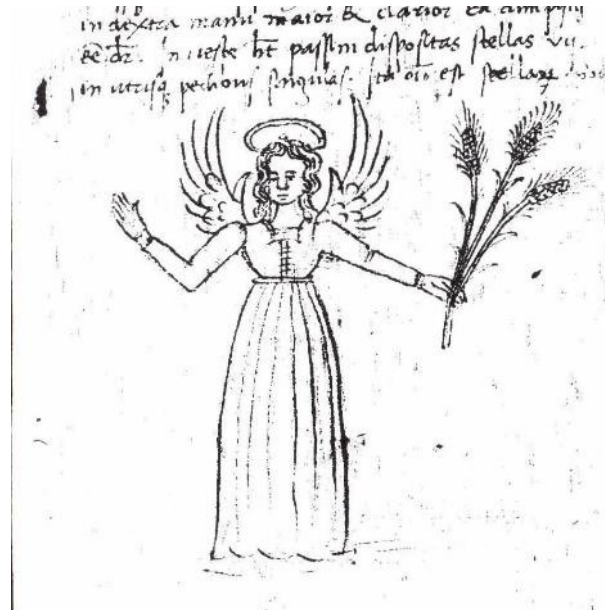 in dextra manu maior & clarior ea
dr. in veste ht passim dispositas stellas vii.
in utrisq pedibus singulas. ita est stellarum